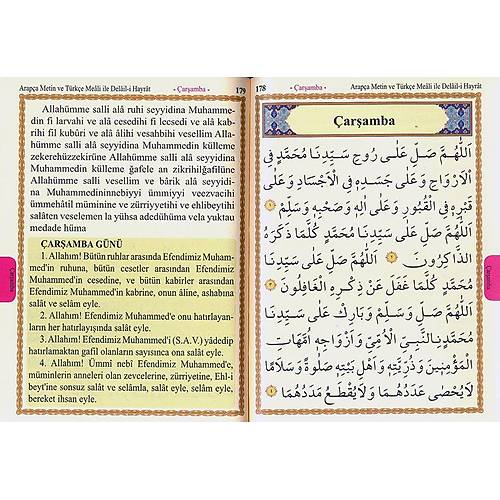 Arapça Metin ve Türkçe Meâli ile Delâil-i Hayrât
- Çarşamba -
179
Allahümme salli alâ ruhi seyyidina Muhamme-
din fi larvahi ve alâ cesedihi fi lecsedi ve alâ kab-
rihi fil kubûri ve alâ âlihi vesahbihi vesellim Alla-
hümme salli alâ seyyidina Muhammedin külleme
zekerehüzzekirüne Allahümme salli alâ seyyidina
Muhammedin külleme ğafele an zikrihilğafilüne
Allahümme salli vesellim ve bârik alâ seyyidi-
na Muhammedininnebiyyi ümmiyyi vezvacihi
ümmehâtil müminine ve zürriyyetihi ve ehlibeytihi
salâten veselemen la yühsa adedühüma vela yuktau
medade hüma
ÇARŞAMBA GÜNÜ
1. Allahım! Bütün ruhlar arasında Efendimiz Muham-
med'in ruhuna, bütün cesetler arasından Efendimiz
Muhammed'in cesedine, ve bütün kabirler arasından
Efendimiz Muhammed'in kabrine, onun âline, ashabına
salât ve selâm eyle.
2. Allahım! Efendimiz Muhammed'e onu hatırlayan-
ların her hatırlayışında salât eyle.
3. Allahım! Efendimiz Muhammed'i (S.A.V.) yâdedip
hatırlamaktan gafil olanların sayısınca ona salât eyle.
4. Allahım! Ümmî nebî Efendimiz Muhammed'e,
müminlerin anneleri olan zevcelerine, zürriyetine, Ehl-i
beyt'ine sonsuz salât ve selâmla, salât eyle, selâm eyle,
bereket ihsan eyle.
Çarşamba
178
- Çarşamba -
Arapça Metin ve Türkçe Meâli ile Delâil-i Hayrât
Çarşamba
اَللّٰهُمَّ صَلِّ عَلٰى رُوحِ سَيِّدِنَا مُحَمَّدٍ فِي
الْاَرْوَاحِ وَعَلٰى جَسَدِهٖ فِي الْاَجْسَادِ وَعَلٰى
قَبْرِهٖ فِي الْقُبُورِ وَعَلٰى اٰلِهٖ وَصَحْبِهٖ وَسَلِّمْ
اَللّٰهُمَّ صَلِّ عَلٰى سَيِّدِنَا مُحَمَّدٍ كُلَّمَا ذَكَرَهُ
الذَّاكِرُونَ اَللّٰهُمَّ صَلِّ عَلٰى سَيِّدِنَا
مُحَمَّدٍ كُلَّمَا غَفَلَ عَنْ ذِكْرِهِ الْغَافِلُونَ
اَللّٰهُمَّ صَلِّ وَسَلِّمْ وَبَارِكْ عَلٰى سَيِّدِنَا
مُحَمَّدٍ النَّبِيِّ الْاُمِّيِّ وَاَزْوَاجِهٖ اُمَّهَاتِ
الْمُؤْمِنِينَ وَذُرِّيَّتِهٖ وَاَهْلِ بَيْتِهٖ صَلٰوةً وَسَلَامًا
لَا يُحْصٰى عَدَدُهُمَا وَلَا يُقْطَعُ مَدَدُهُمَا
Çarşamba